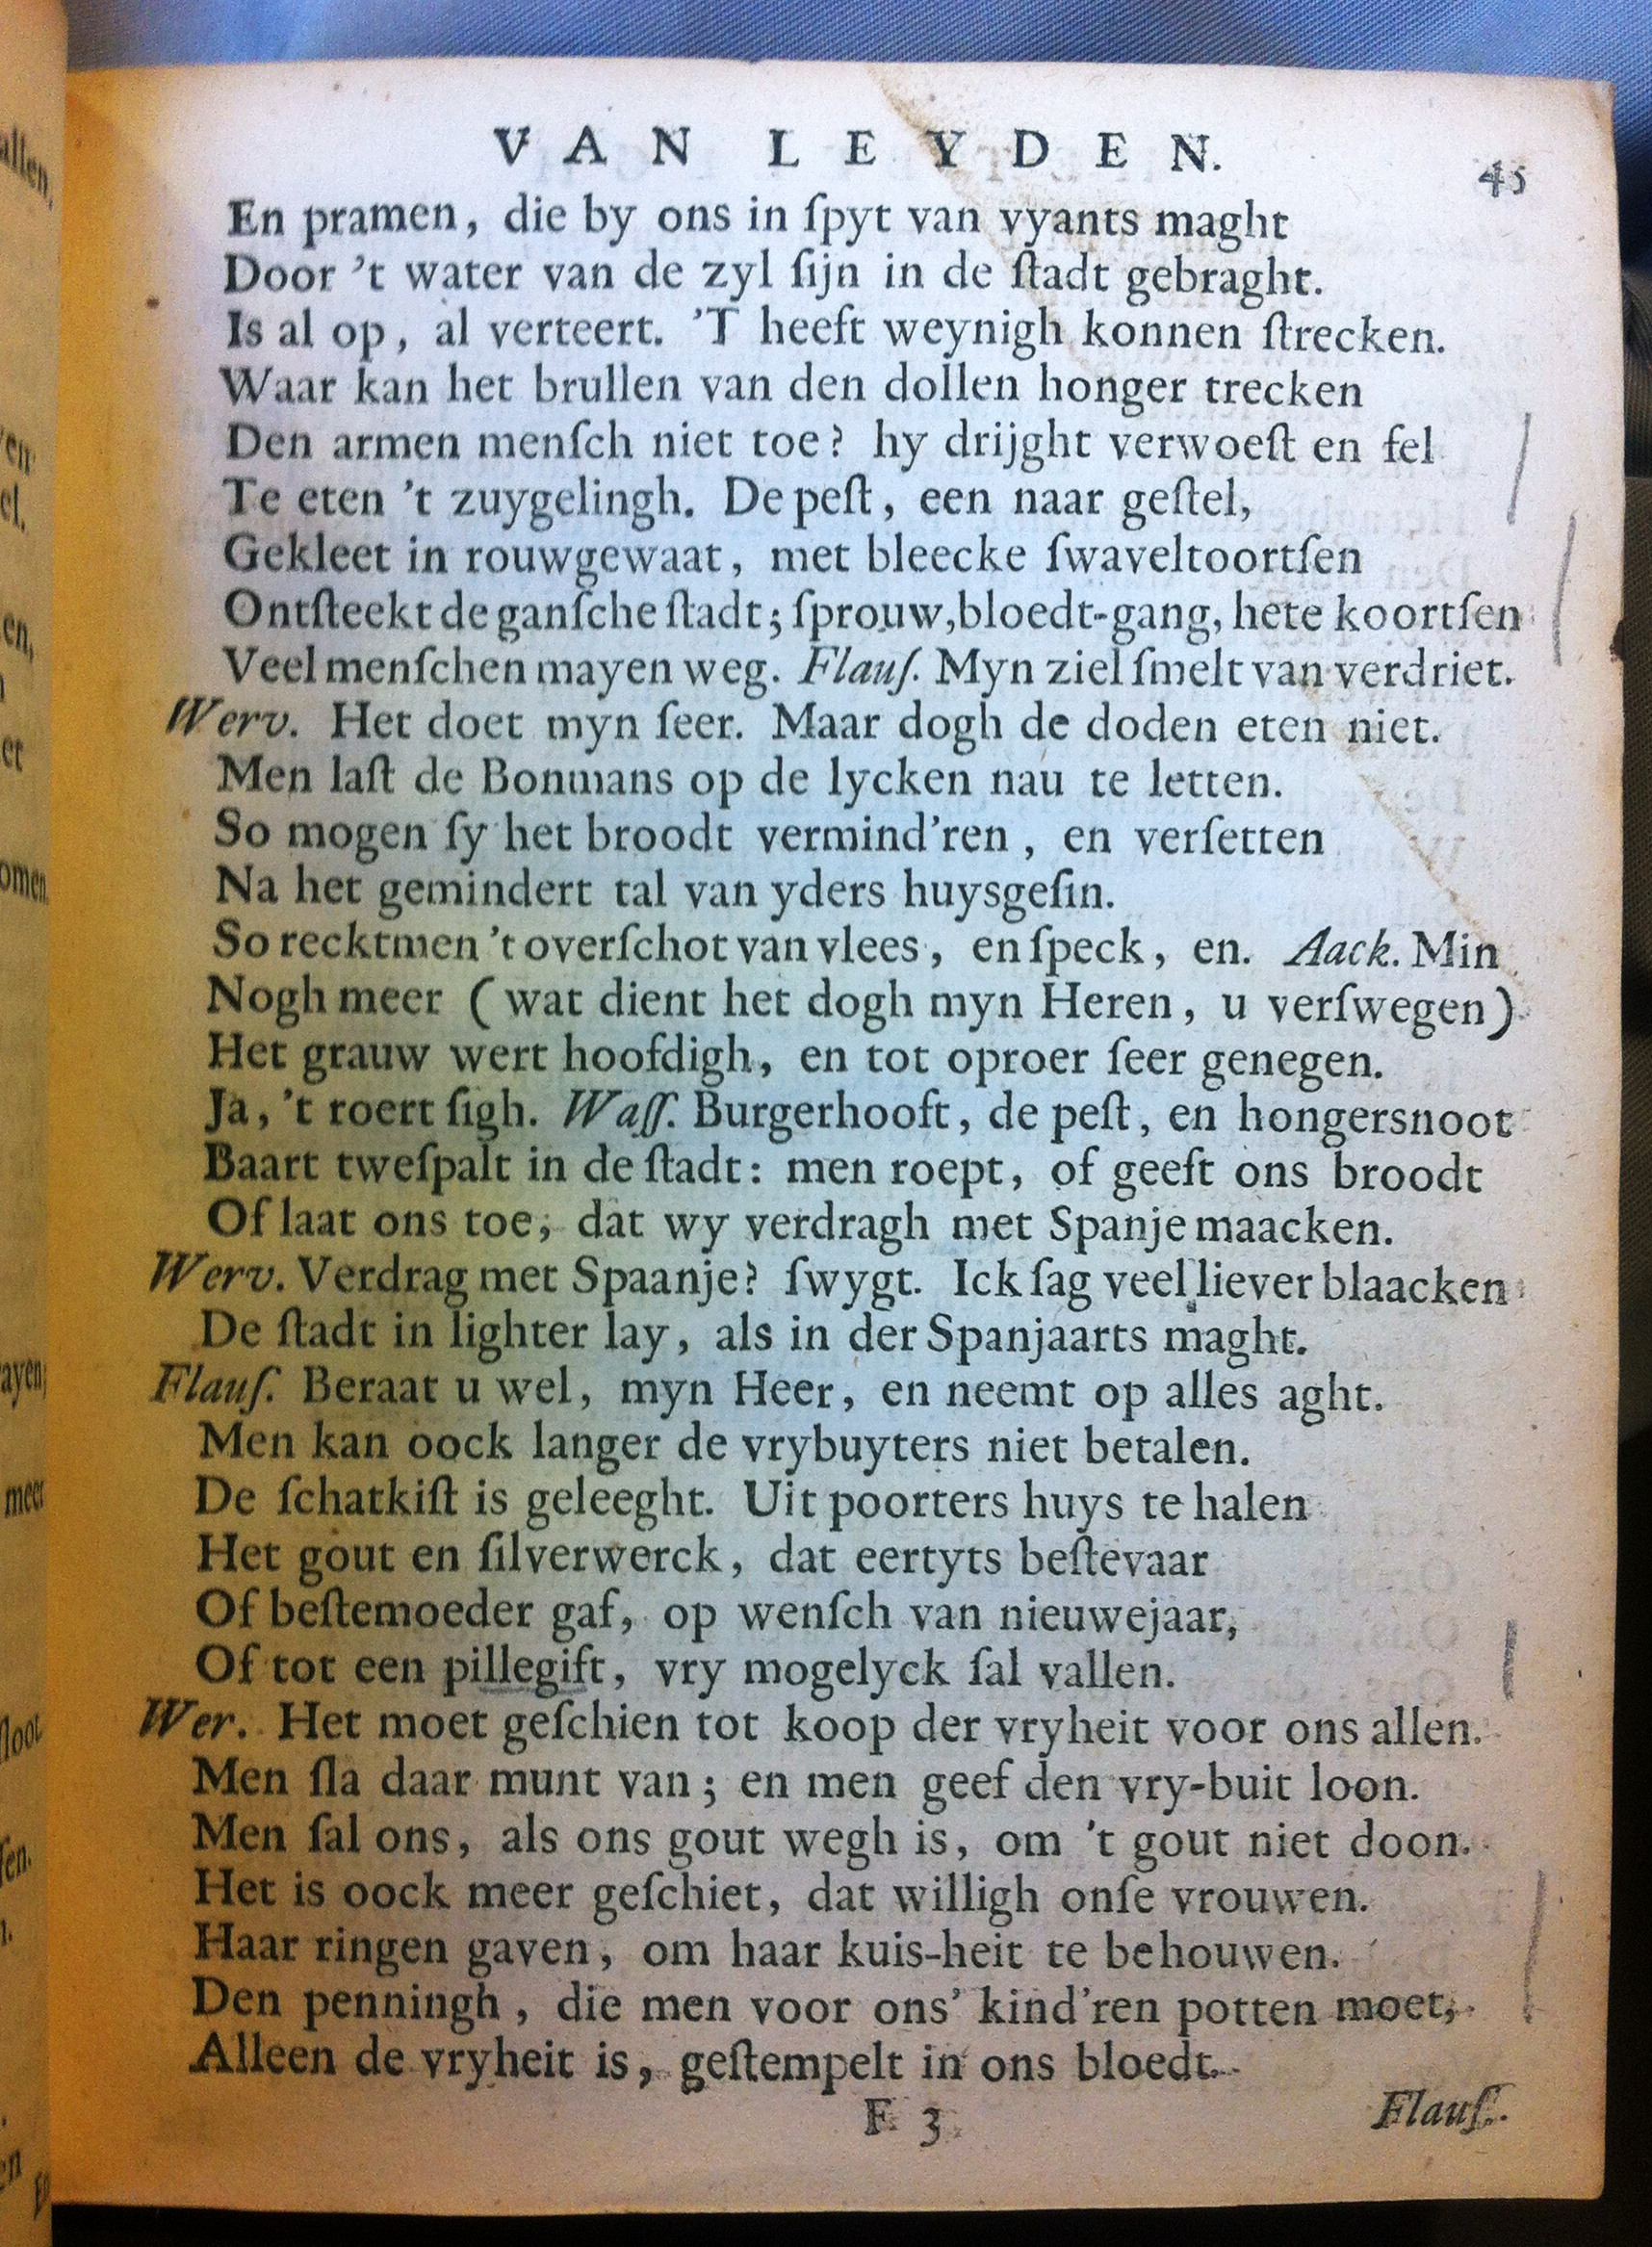 VAN LEYDEN. 45
En pramen, die by ons in ſpyt van vyants maght
Door 't water van de zyl ſijn in de ſtadt gebraght.
Is al op, al verteert. 'T heeft weynigh konnen ſtrecken.
Waar kan het brullen van den dollen honger trecken
Den armen menſch niet toe? hy drijght verwoeſt en fel
Te eten 't zuygelingh. De peſt, een naar geſtel,
Gekleet in rouwgewaat, met bleecke ſwaveltoortſen
Ontſteekt de ganſche ſtadt; ſprouw, bloedt-gang, hete koortſen
Veel menſchen mayen weg. Flauſ. Myn ziel ſmelt van verdriet.
Werv. Het doet myn ſeer. Maar dogh de doden eten niet.
Men laſt de Bonmans op de lycken nau te letten.
So mogen ſy het broodt vermind'ren, en verſetten
Na het gemindert tal van yders huysgeſin.
So recktmen 't overſchot van vlees, en ſpeck, en. Aack. Min
Nogh meer (wat dient het dogh myn Heren, u verſwegen)
Het grauw wert hoofdigh, en tot oproer ſeer genegen.
Ja, 't roert ſigh. Waſſ. Burgerhooft, de peſt, en hongersnoot
Baart tweſpalt in de ſtadt: men roept, of geeft ons broodt
Of laat ons toe, dat wy verdragh met Spanje maacken.
Werv. Verdrag met Spaanje? ſwygt. Ick ſag veel liever blaacken
De ſtadt in lighter lay, als in der Spanjaarts maght.
Flauſ. Beraat u wel, myn Heer, en neemt op alles aght.
Men kan oock langer de vrybuyters niet betalen.
De ſchatkiſt is geleeght. Uit poorters huys te halen
Het gout en ſilverwerck, dat eertyts beſtevaar
Of beſtemoeder gaf, op wenſch van nieuwejaar,
Of tot een pillegift, vry mogelyck ſal vallen.
Wer. Het moet geſchien tot koop der vryheit voor ons allen.
Men ſla daar munt van; en men geef den vry-buit loon.
Men ſal ons, als ons gout wegh is, om 't gout niet doon.
Het is oock meer geſchiet, dat willigh onſe vrouwen.
Haar ringen gaven, om haar kuis-heit te behouwen.
Den penningh, die men voor ons' kind'ren potten moet,
Alleen de vryheit is, geſtempelt in ons bloedt.
F 3 Flauſ.